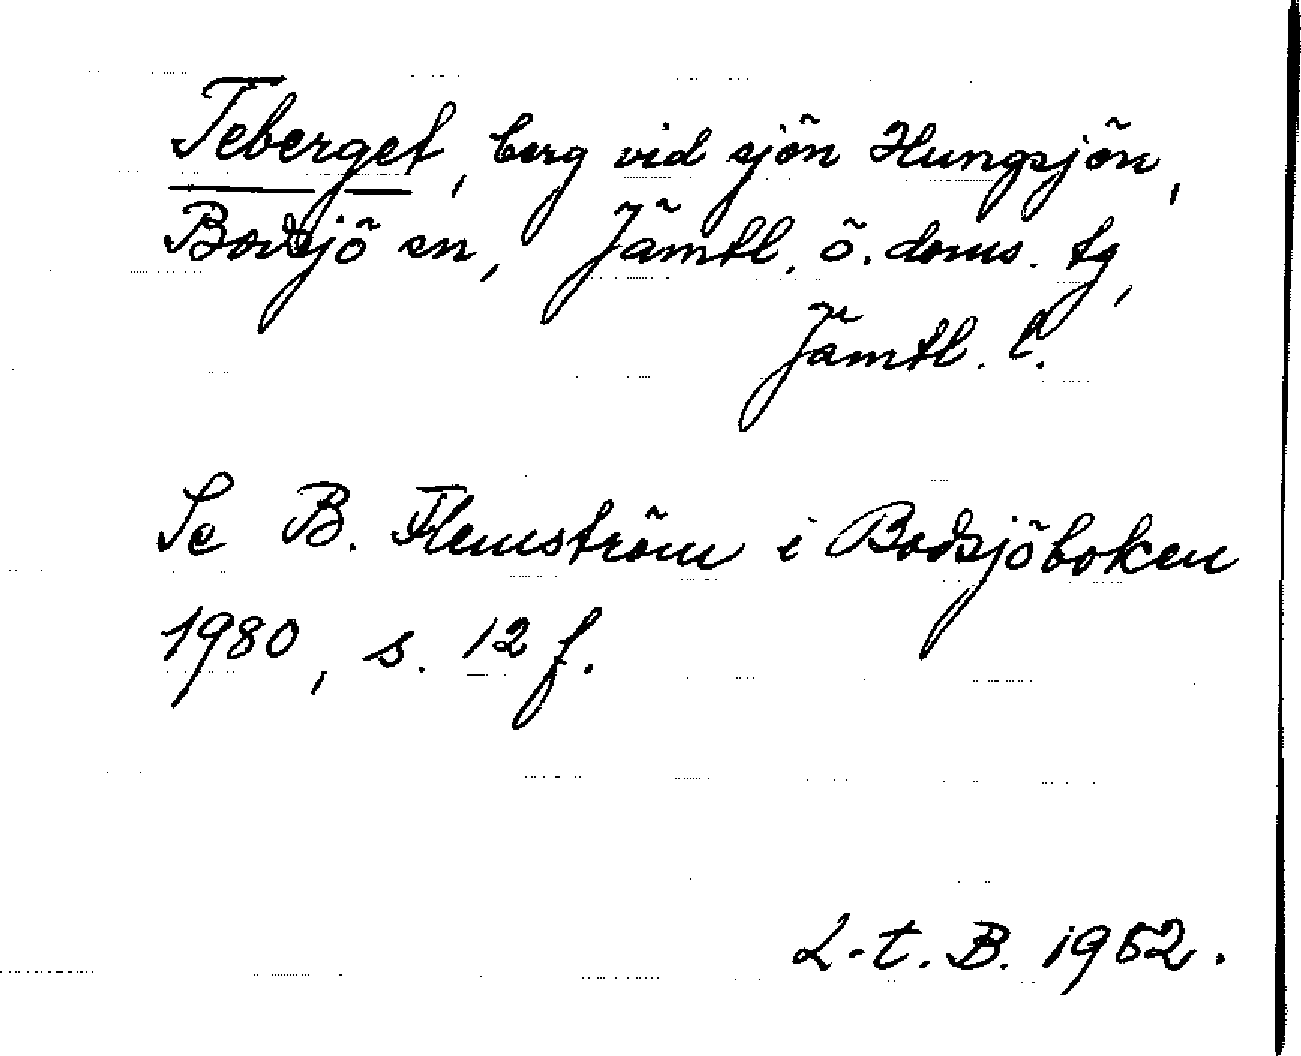 Teberget, berg vid sjön Hungsjön,
Bodsjö sn, Jämtl. ö. doms. tg,
Jämtl. l.
Se B. Flemström i Bodsjöboken
1980, s. 12 f.
L-t. B. 1952.